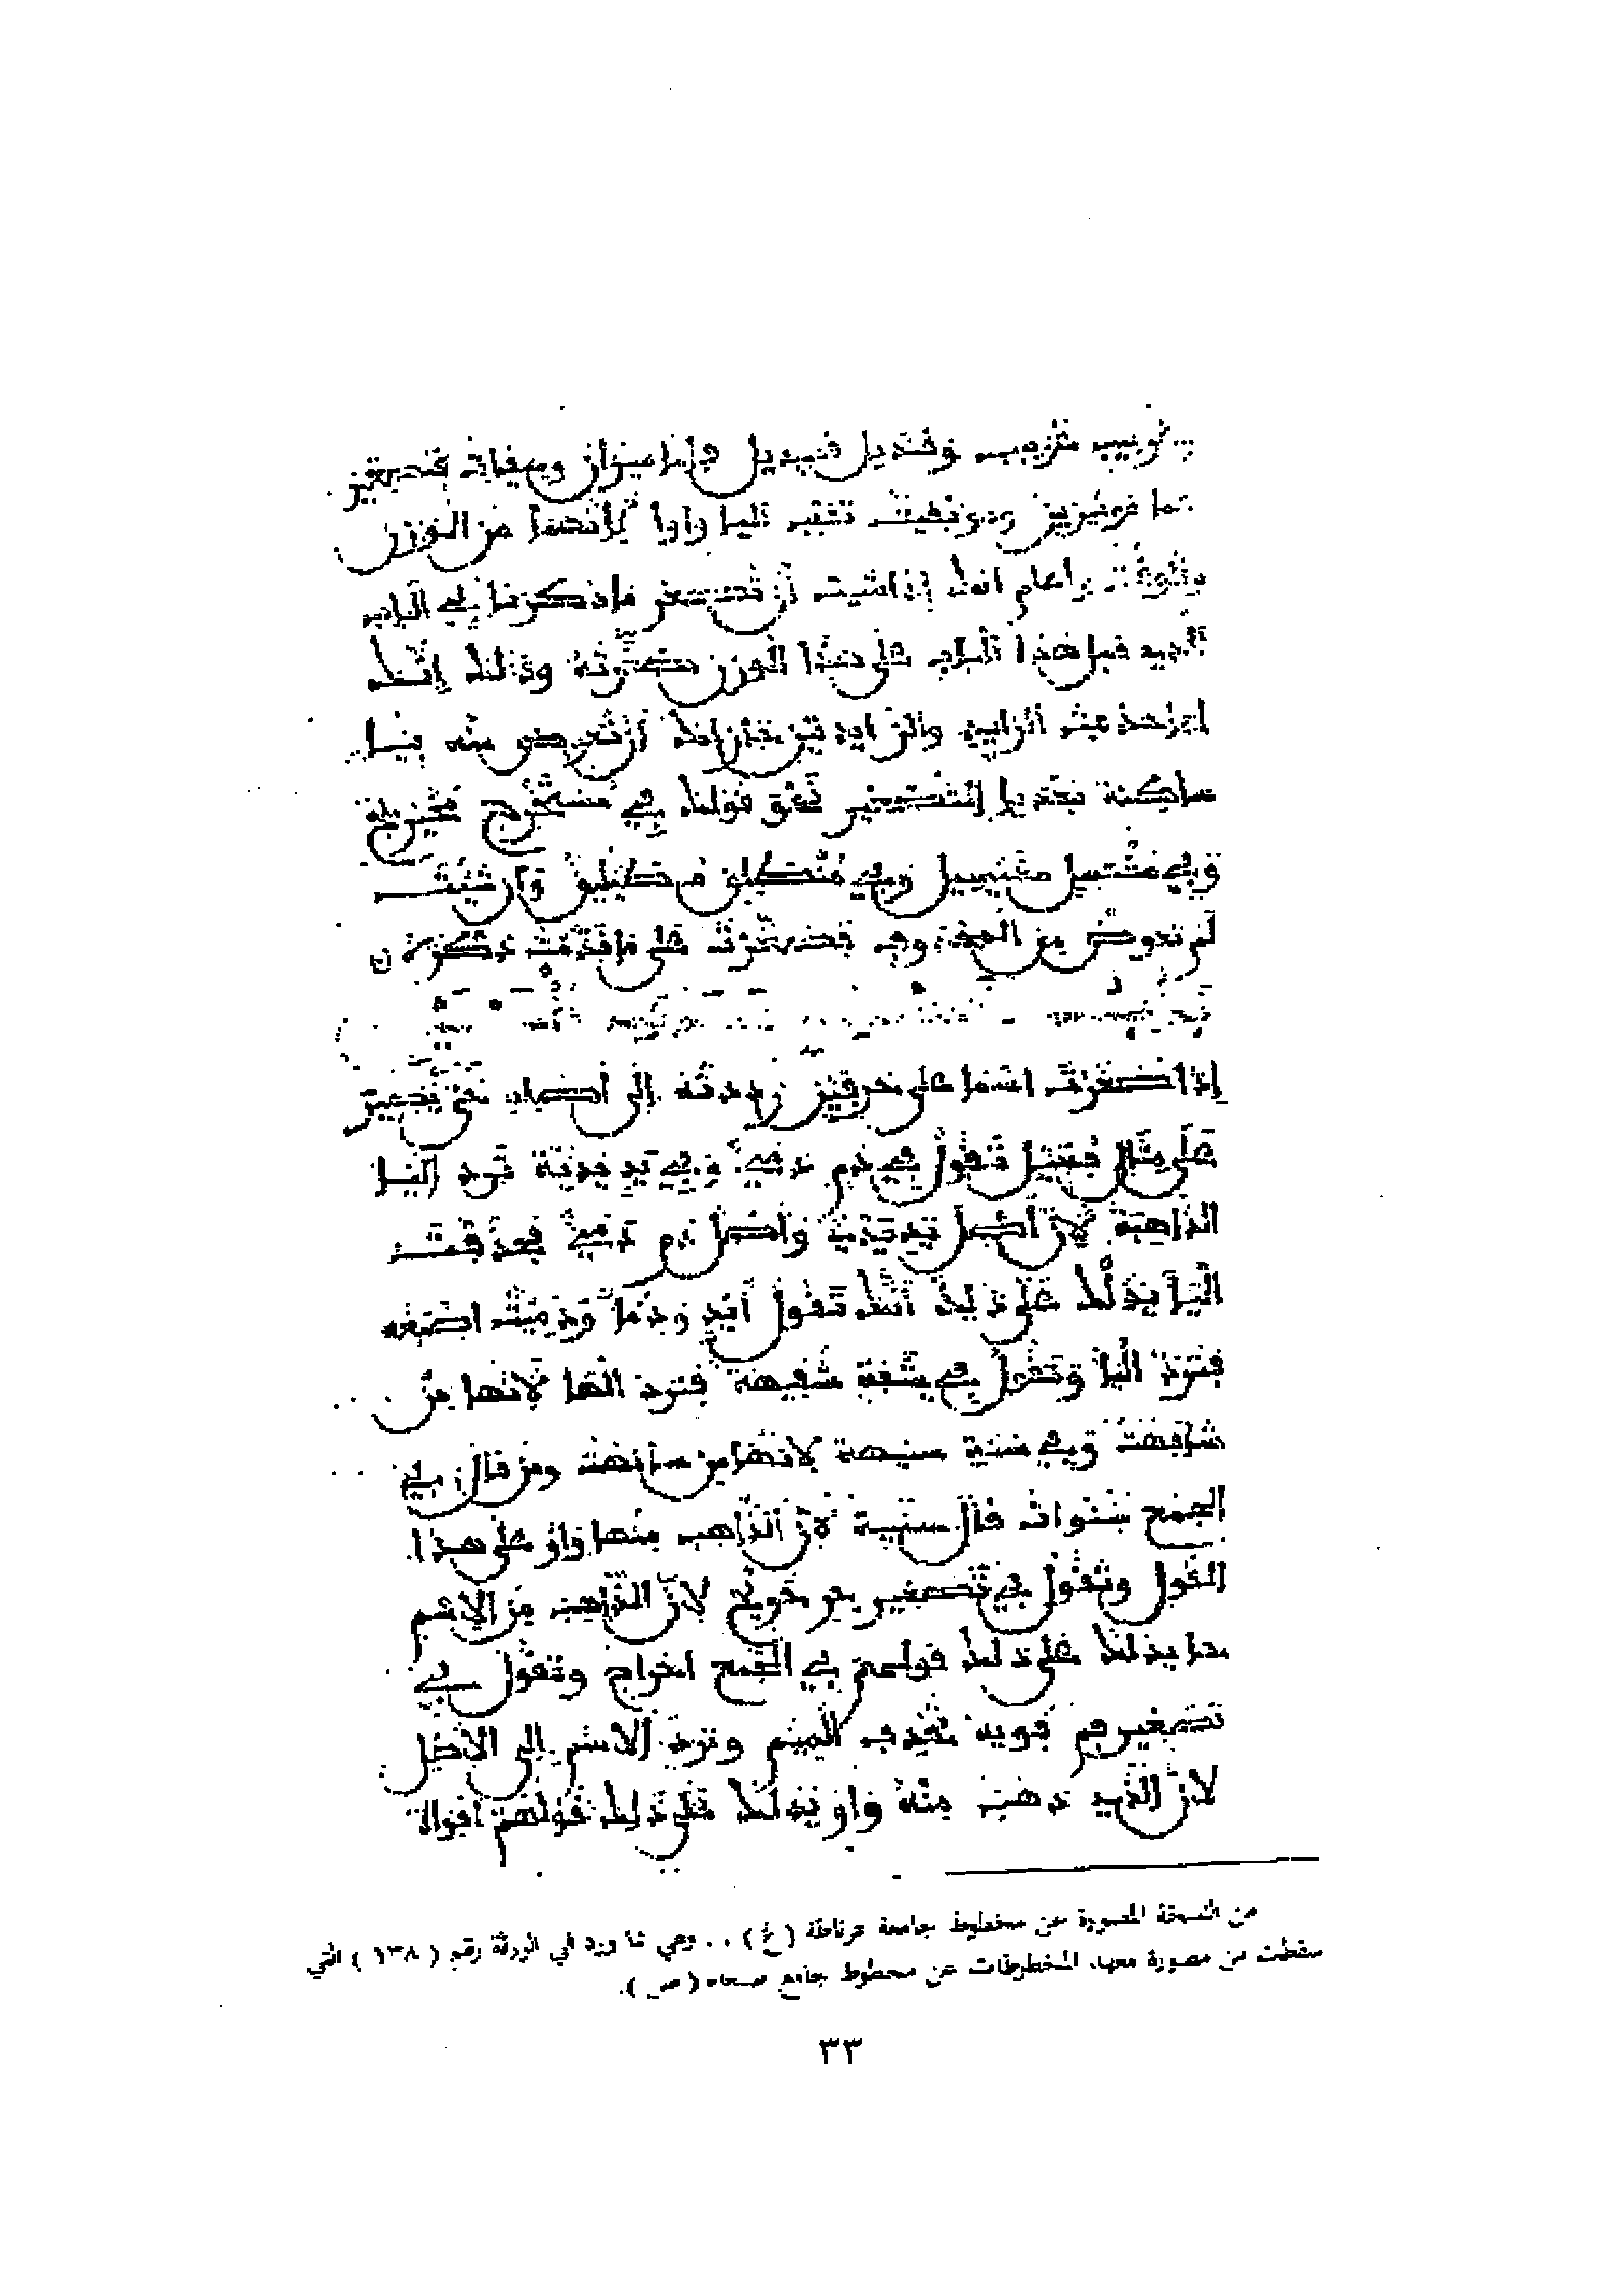 وقنديل قنيديل وأما ميزان وميقات فتصغير
هما مويزين ومويقيت تقلب اليا واوا لأنهما من الوزن
والوقت واعلم أنك إذا شيت أن تصغر ما ذكرنا في الباب
الذي قبل هذا الباب على هذا الوزن صغرته وذلك إنك
إذا حذفت الزايد والزايدتين جاز لك أن تعوض منه يا
ساكنة بعد يا التصغير نحو قولك في مستخرج مخيريج
وفي مغتسل مغيسيل وفي منطلق مطيليق وإن شئت
لم تعوض من المحذوف فصغرت على ما قدمت ذكره
إذا صغرت اسما على حرفين رددته إلى أصله حتى يصير
على مثال فعيل تقول في دم دمي وفي يد يدية ترد اليا
الذاهبة لأن أصل يد يدي وأصل دم دمي فحذفت
اليا يدلك على ذلك أنك تقول أيد ودما ودميت اصبعه
فترد اليا وتقول في شفة شفيهة فترد الها لأنها من
شافهت وفي سنة سنيهة لأنها من سانهت ومن قال في
الجمع سنوات قال سنية لأن الذاهب منها واو على هذا
القول وتقول في تصغير حر حريح لأن الذاهب من الاسم
حا يدلك على ذلك قولهم في الجمع احراح وتقول في
تصغير فم فويه تحذف الميم وترد الاسم إلى الأصل
لأن الذي ذهب منه واو يدلك على ذلك قولهم أفواه
من النسخة المصورة عن مخطوط بجامعة غرناطة ( غ ) . . وهي ما ورد في الورقة رقم ( ١٣٨ ) التي
سقطت من مصورة معهد المخطوطات عن مخطوط بجامع صنعاء ( ص ) .
٣٣